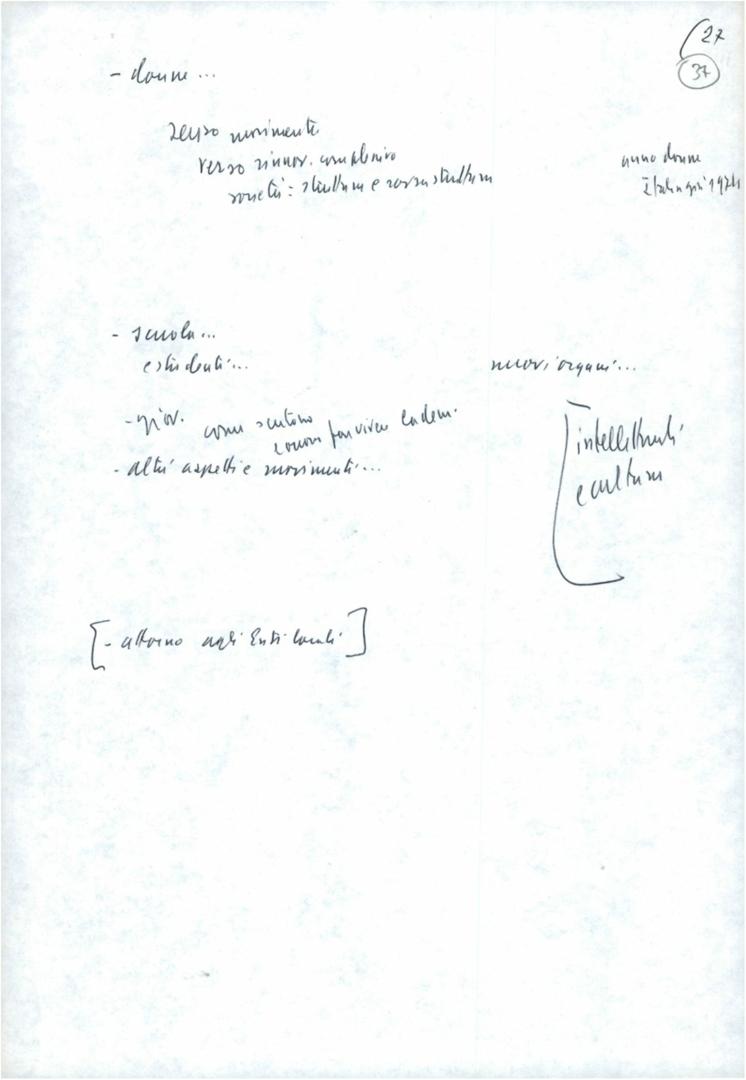 27
37
- donne...
senso movimento
verso rinnov. complessivo
società: struttura e sovrastruttura
anno donne
già 1974
- scuola...
e studenti...
nuovi organi...
- giov. come sentono
fan vivere la dem.
- altri aspetti e movimenti...
intellettuali
e cultura
[- attorno agli Enti locali]